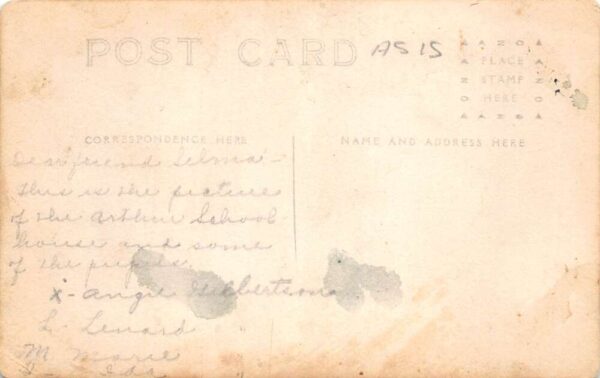 POST CARD
AS IS
AZOA
PLACE
STAMP
HERE
CORRESPONDENCE HERE
NAME AND ADDRESS HERE
Dear friend Selma -
This is the picture
of the Arthur School
house and some
of the pupils.
X - Angie Gilbertson
L. Lenard
M Marie
Ida